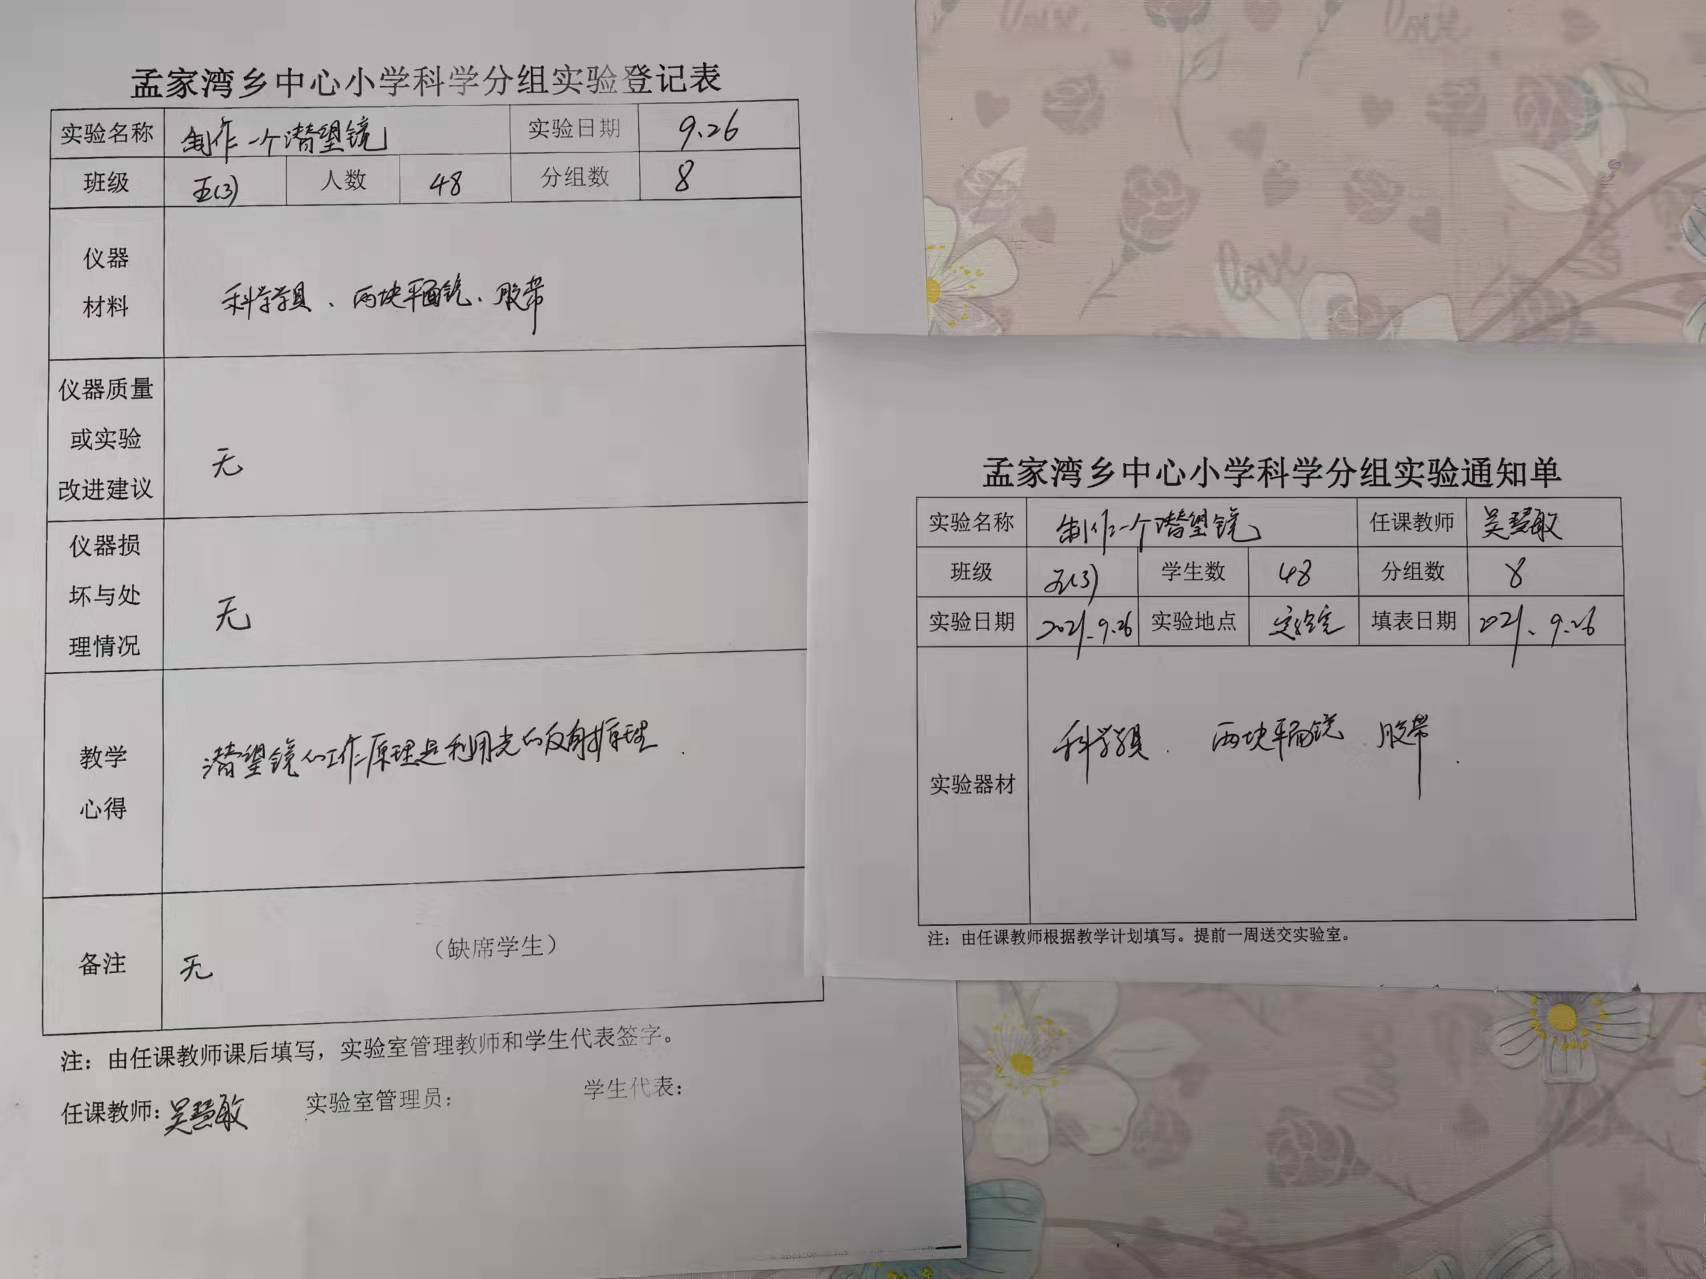 孟家湾乡中心小学科学分组实验登记表
实验名称 制作一个潜望镜 实验日期 9.26
班级 五(3) 人数 48 分组数 8
仪器
材料
科学学具、两块平面镜、胶带
仪器质量
或实验
改进建议
无
仪器损
坏与处
理情况
无
教学
心得
潜望镜的工作原理是利用光的反射原理.
备注 无 (缺席学生)
注：由任课教师课后填写，实验室管理教师和学生代表签字。
任课教师：吴慧敏 实验室管理员： 学生代表：
孟家湾乡中心小学科学分组实验通知单
实验名称 制作一个潜望镜 任课教师 吴慧敏
班级 五(3) 学生数 48 分组数 8
实验日期 2021.9.26 实验地点 实验室 填表日期 2021.9.26
实验器材 科学学具、两块平面镜、胶带.
注：由任课教师根据教学计划填写。提前一周送交实验室。
love